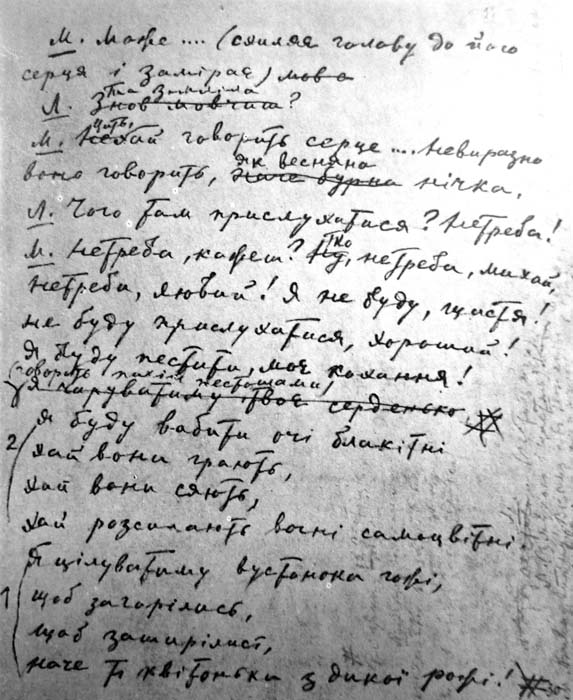 М. Може .... (схиляє голову до його
серця і заміpає) мова
та заніміла
Л. Знов мовчиш?
Цить,
М. Нехай говорить серце ... Невиразно
як весняна
воно говорить, наче бурна нічка.
Л. Чого там прислухатися? Не треба!
М. Не треба, кажеш? не треба, милий,
Не треба, любий! Я не буду, щастя!
Не буду прислухатися, хороший!
Я буду пестити, моє кохання!
(говорить палкій пестощами)
я чаруватиму твоє серденько
2 Я буду вабити очі блакітні
хай вони грають,
хай вони сяють,
хай розсипають вогні самоцвітні.
1 Я цілуватиму вустонька гожі,
щоб загорілись,
щоб зашарілись,
наче ті квітоньки з дикої рожі!